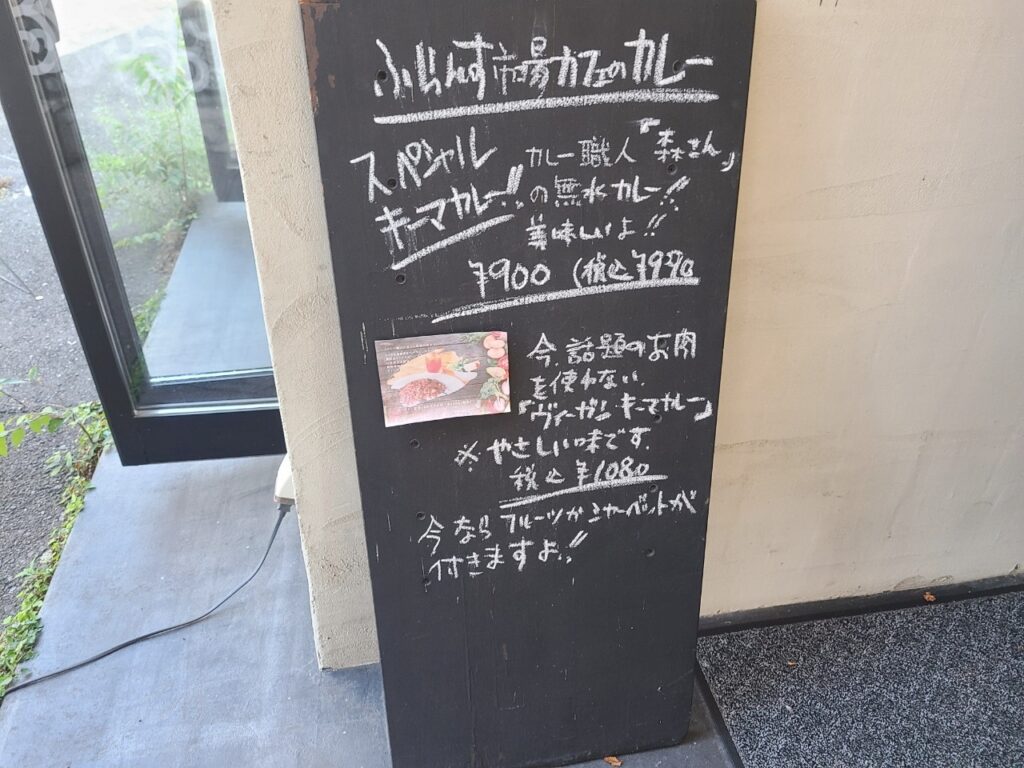 ふらんす市場カフェのカレー
スペシャル
キーマカレー!!
カレー職人『森さん』
の無水カレー!!
美味しいよ!!
¥900 (税込¥990
今、話題のお肉
を使わない、
「ヴィーガンキーマカレー」
※やさしい味です。
税込 ¥1080
今ならフルーツかシャーベットが
付きますよ!!